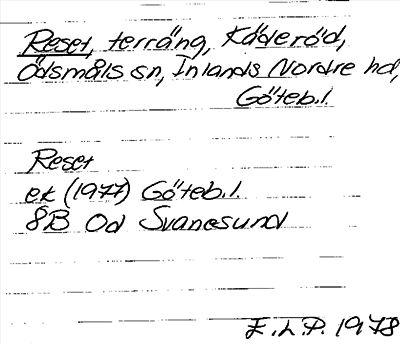 Reset, terräng, Köderöd,
Ödsmåls sn, Inlands Nordre hd,
Göteb.l.
Reset
ek (1977) Göteb.l.
8B Od Svanesund
E.L.P. 1978